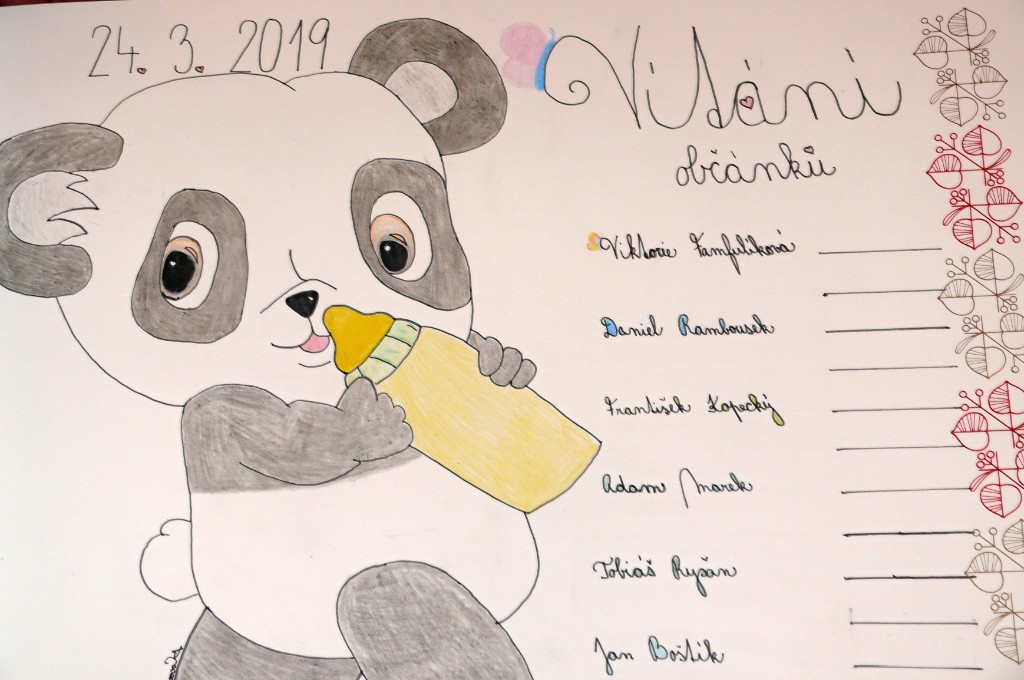 24. 3. 2019
Vítání
občánků
Viktorie Famfulíková
Daniel Rambousek
František Kopecký
Adam Marek
Tobiáš Ryšán
Jan Boštík